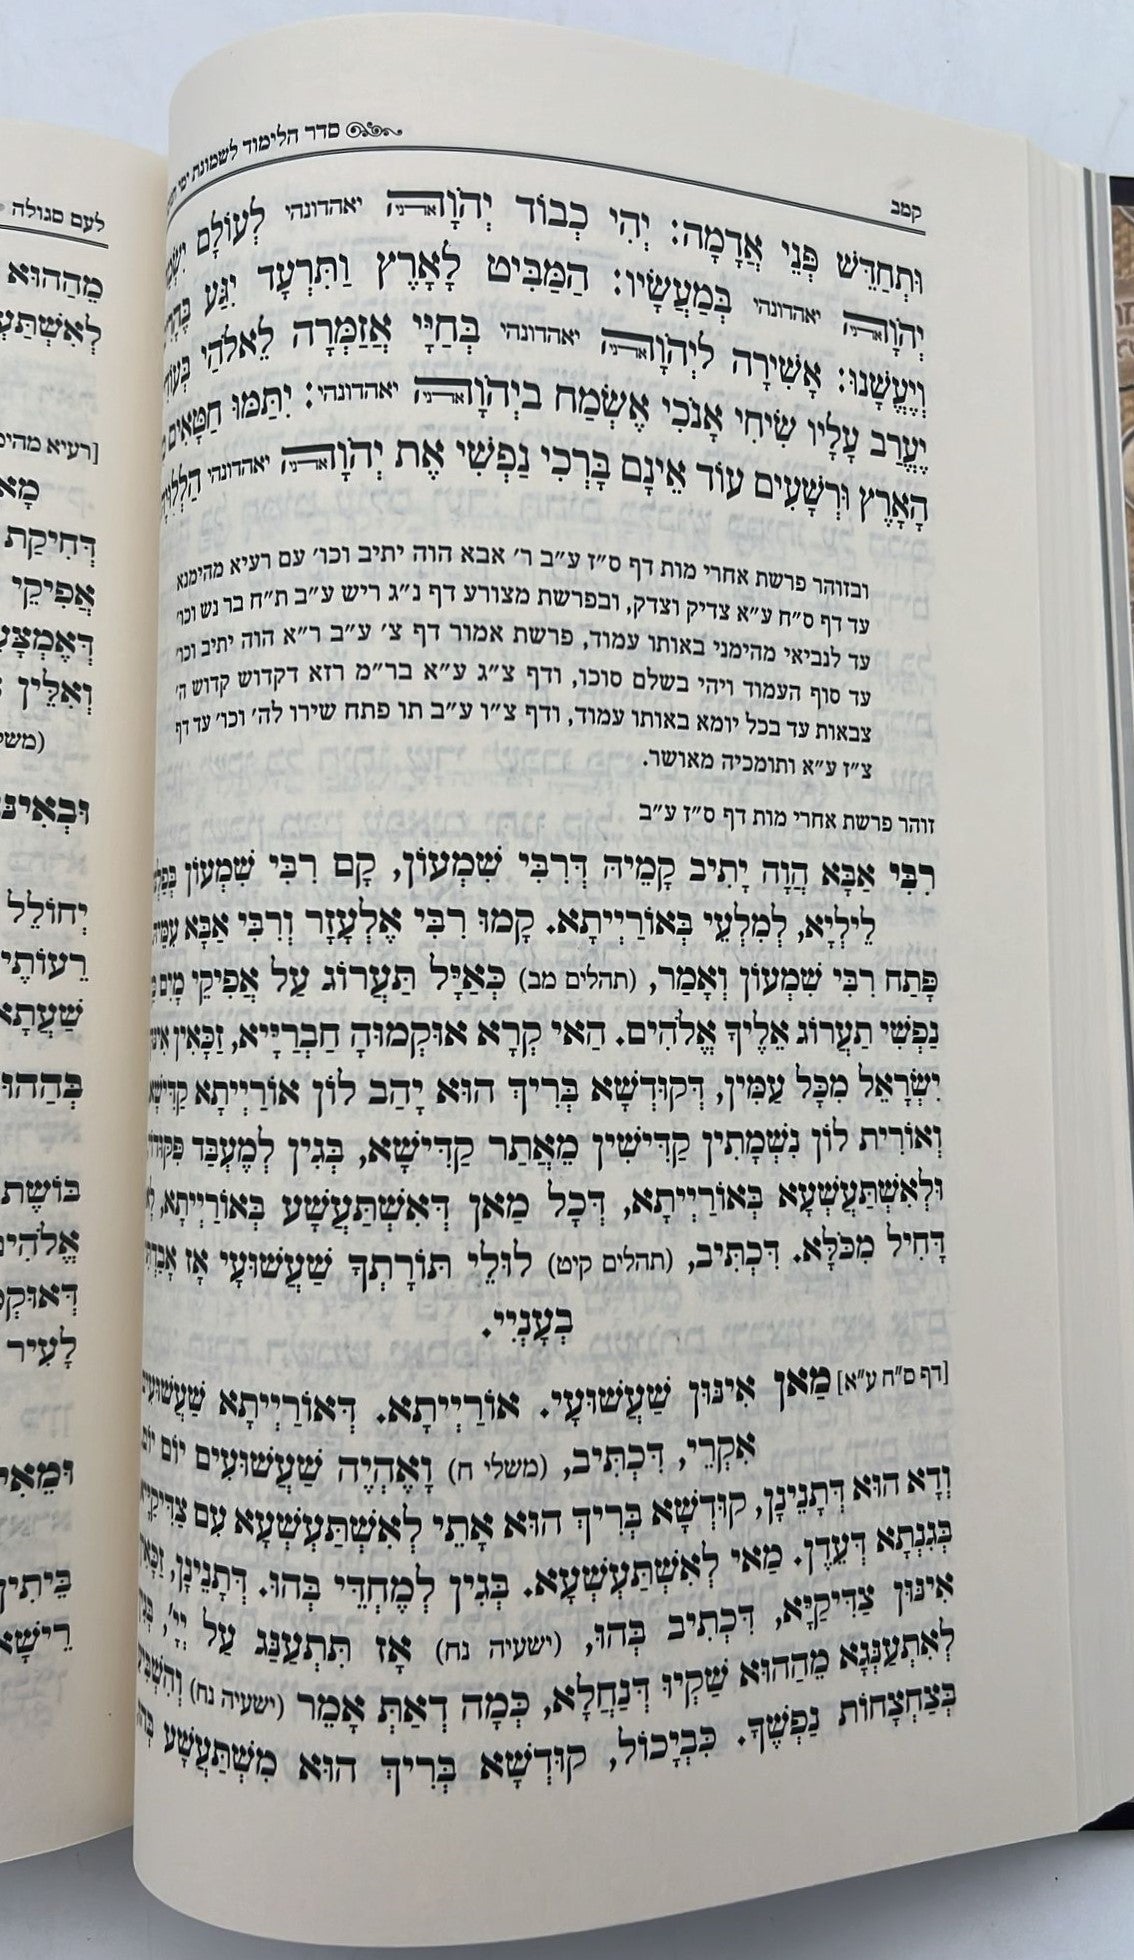 סדר הלימוד לשמונת ימי
קמב
וּתְחַדֵּשׁ פְּנֵי אֲדָמָה: יְהִי כְבוֹד יְהֹוָה אדני יאהדונהי לְעוֹלָם
יְהֹוָה יאהדונהי בְּמַעֲשָׂיו: הַמַּבִּיט לָאָרֶץ וַתִּרְעָד יִגַּע
וְיֶעֱשָׁנוּ: אָשִׁירָה לַיְהֹוָה אדני יאהדונהי בְּחַיָּי אֲזַמְּרָה לֵאלֹהַי
יֶעֱרַב עָלָיו שִׂיחִי אָנֹכִי אֶשְׂמַח בַּיְהֹוָה אדני יאהדונהי: יִתַּמּוּ חַטָּאִים
הָאָרֶץ וּרְשָׁעִים עוֹד אֵינָם בָּרְכִי נַפְשִׁי אֶת יְהֹוָה אדני יאהדונהי
ובזוהר פרשת אחרי מות דף ס״ז ע״ב ר׳ אבא הוה יתיב וכו׳ עם רעיא מהימנא
עד דף ס״ח ע״א צדיק וצדק, ובפרשת מצורע דף נ״ג ריש ע״ב ת״ח בר נש וכו׳
עד לנביאי מהימני באותו עמוד, פרשת אמור דף צ׳ ע״ב ר״א הוה יתיב וכו׳
עד סוף העמוד ויהי בשלם סוכו, ודף צ״ג ע״א בר״מ רזא דקדוש קדוש ה׳
צבאות עד בכל יומא באותו עמוד, ודף צ״ו ע״ב תו פתח שירו לה׳ וכו׳ עד דף
צ״ז ע״א ותומכיה מאושר.
זוהר פרשת אחרי מות דף ס״ז ע״ב
רִבִּי אַבָּא הֲוָה יָתִיב קָמֵיהּ דְּרִבִּי שִׁמְעוֹן, קָם רִבִּי שִׁמְעוֹן
לֵילְיָא, לְמִלְעֵי בְּאוֹרַיְיתָא. קָמוּ רִבִּי אֶלְעָזָר וְרִבִּי אַבָּא
פָּתַח רִבִּי שִׁמְעוֹן וְאָמַר, (תהלים מב) כְּאַיָּל תַּעֲרוֹג עַל אֲפִיקֵי מָיִם
נַפְשִׁי תַעֲרוֹג אֵלֶיךָ אֱלֹהִים. הַאי קְרָא אוּקְמוּהָ חַבְרַיָּיא, זַכָּאִין
יִשְׂרָאֵל מִכָּל עַמִּין, דְּקוּדְשָׁא בְּרִיךְ הוּא יָהַב לוֹן אוֹרַיְיתָא קַדִּישָׁא
וְאוֹרִית לוֹן נִשְׁמָתִין קַדִּישִׁין מֵאֲתַר קַדִּישָׁא, בְּגִין לְמֶעְבַּד
וּלְאִשְׁתַּעְשְׁעָא בְּאוֹרַיְיתָא, דְּכָל מַאן דְּאִשְׁתַּעֲשָׁע בְּאוֹרַיְיתָא,
דָּחִיל מִכֹּלָּא. דִּכְתִּיב, (תהלים קיט) לוּלֵי תוֹרָתְךָ שַׁעֲשׁוּעָי אָז
בְעָנְיִי.
[דף ס״ח ע״א] מַאן אִינּוּן שַׁעֲשׁוּעָי. אוֹרַיְיתָא. דְּאוֹרַיְיתָא
אִקְרֵי, דִּכְתִּיב, (משלי ח) וָאֶהְיֶה שַׁעֲשׁוּעִים יוֹם יוֹם
וְדָא הוּא דְּתָנֵינָן, קוּדְשָׁא בְּרִיךְ הוּא אָתֵי לְאִשְׁתַּעְשְׁעָא עִם
בְּגִנְתָא דְּעֵדֶן. מַאי לְאִשְׁתַּעְשְׁעָא. בְּגִין לְמֶחְדֵּי בְּהוּ. דְּתָנֵינָן,
אִינּוּן צַדִּיקַיָּא, דִּכְתִּיב בְּהוּ, (ישעיה נח) אָז תִּתְעַנַּג עַל יְיָ׳,
לְאִתְעַנְּגָא מֵהַהוּא שַׁקְיוּ דְּנַחֲלָא, כְּמָה דְאַתְּ אָמֵר (ישעיה נח)
בְּצַחְצָחוֹת נַפְשֶׁךָ. כִּבְיָכוֹל, קוּדְשָׁא בְּרִיךְ הוּא מִשְׁתַּעֲשָׁע
לעם סגולה
מֵהַהוּא
[רעיא
דְּחִיקַת
אֲפִיקֵי
וְאִלֵּין
יְחוֹלֵל
לָעִיר